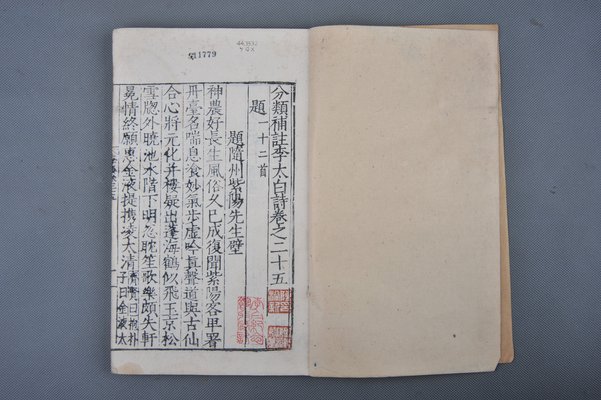 1779
分類補註李太白詩卷之二十五
題一十二首
題隨州紫陽先生壁
神農好長生風俗久已成復聞紫陽客早署
丹臺名喘息飡妙氣步虛吟眞聲道與古仙
合心將元化并樓疑出蓬海鶴似飛玉京松
雪牕外曉池水階下明忽耽笙歌樂頗失軒
冕情終願惠金液提携凌太清齊賢曰抱朴
子曰金液太